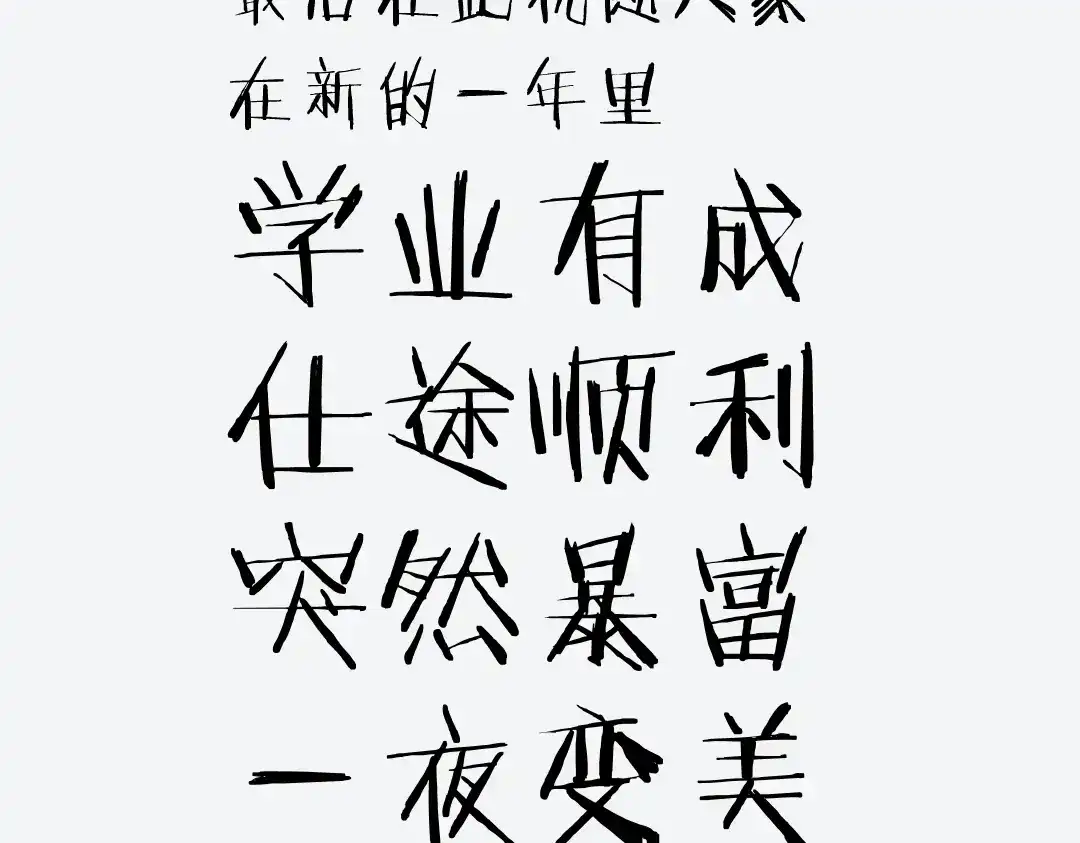 最后在此祝愿大家
在新的一年里
学业有成
仕途顺利
突然暴富
一夜变美